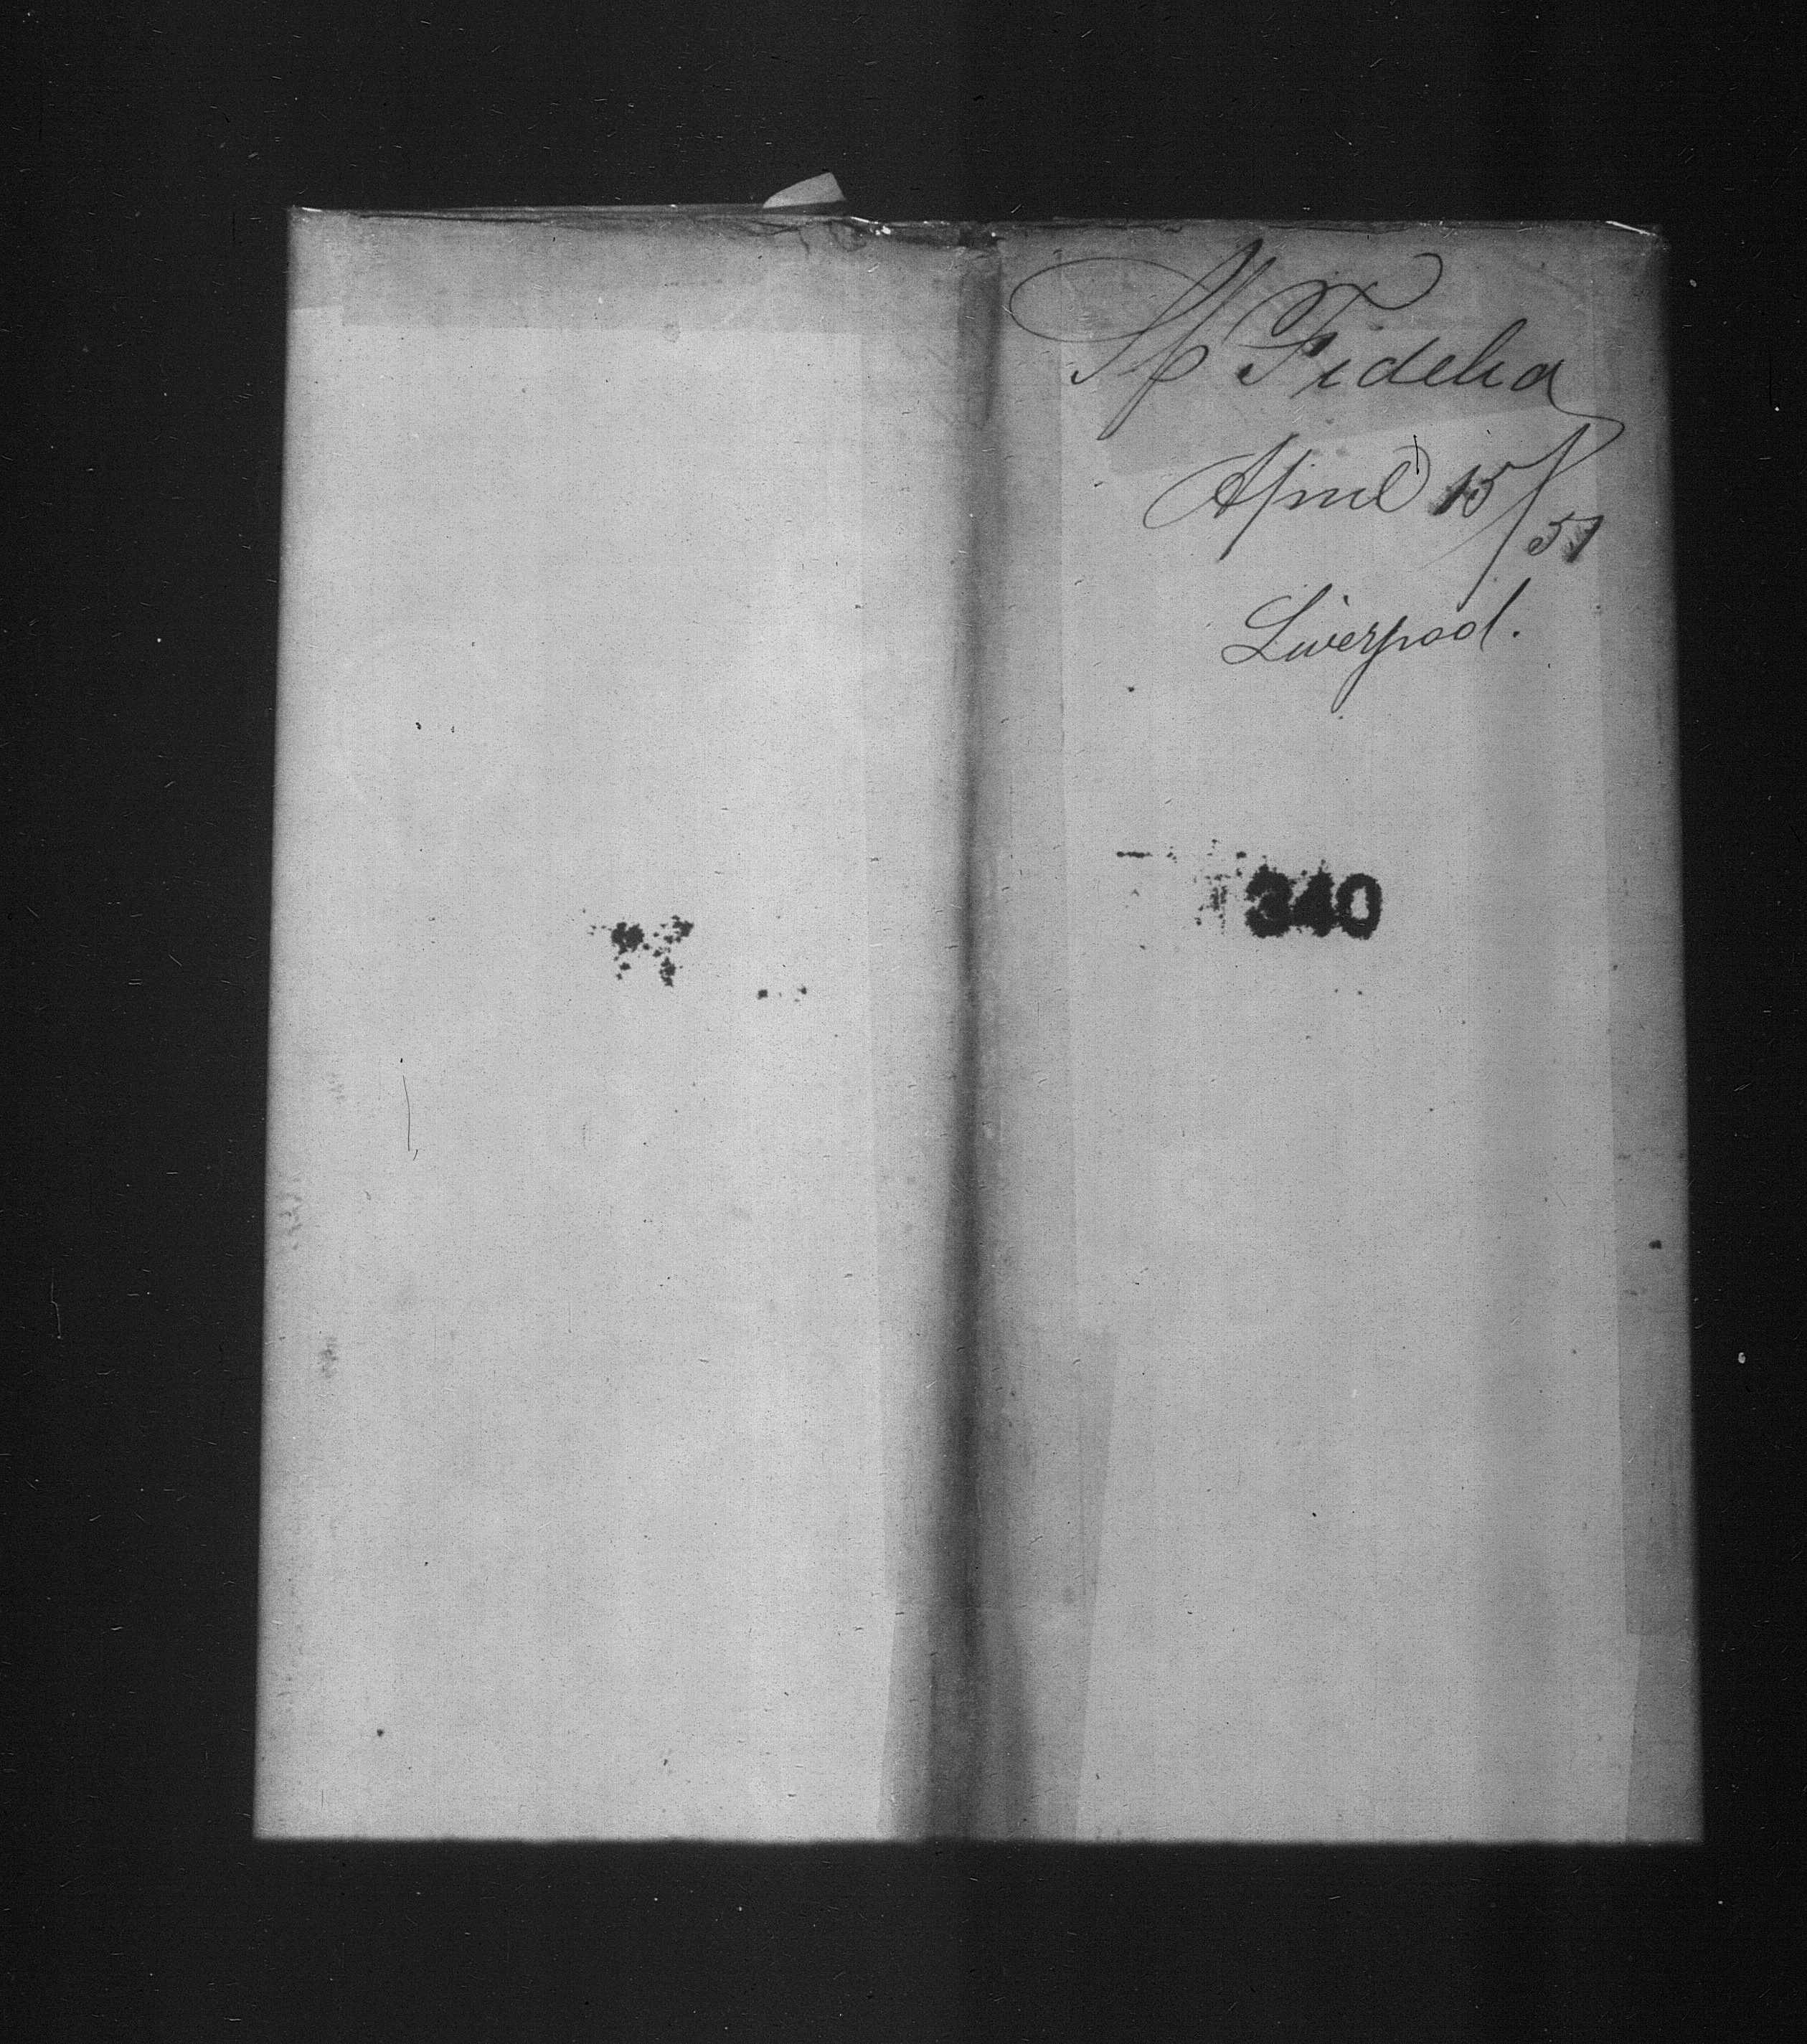 Sh Fidelia
April 15/51
Liverpool.
340